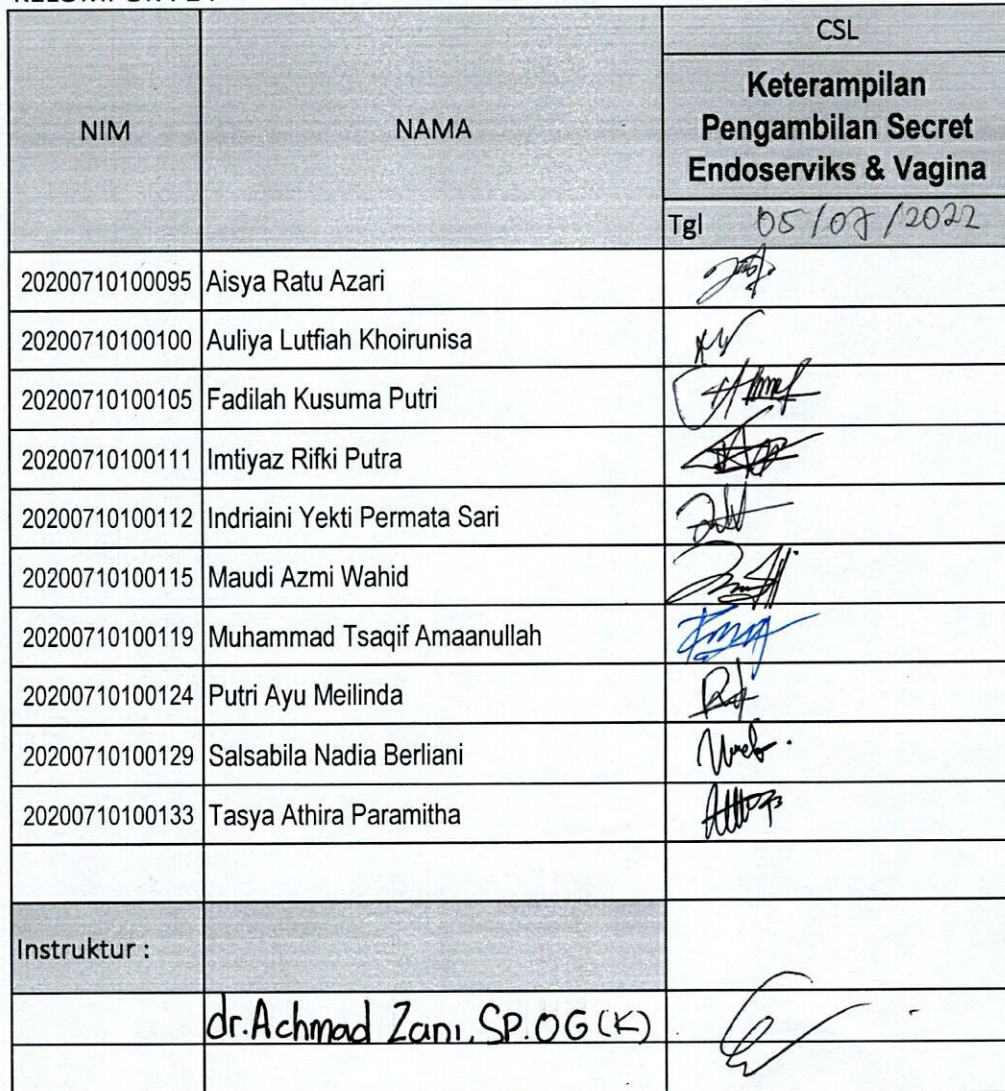 CSL
NIM
NAMA
Keterampilan
Pengambilan Secret
Endoserviks & Vagina
Tgl 05/07/2022
20200710100095 Aisya Ratu Azari
20200710100100 Auliya Lutfiah Khoirunisa
20200710100105 Fadilah Kusuma Putri
20200710100111 Imtiyaz Rifki Putra
20200710100112 Indriaini Yekti Permata Sari
20200710100115 Maudi Azmi Wahid
20200710100119 Muhammad Tsaqif Amaanullah
20200710100124 Putri Ayu Meilinda
20200710100129 Salsabila Nadia Berliani
20200710100133 Tasya Athira Paramitha
Instruktur :
dr. Achmad Zani, SP.OG (K)